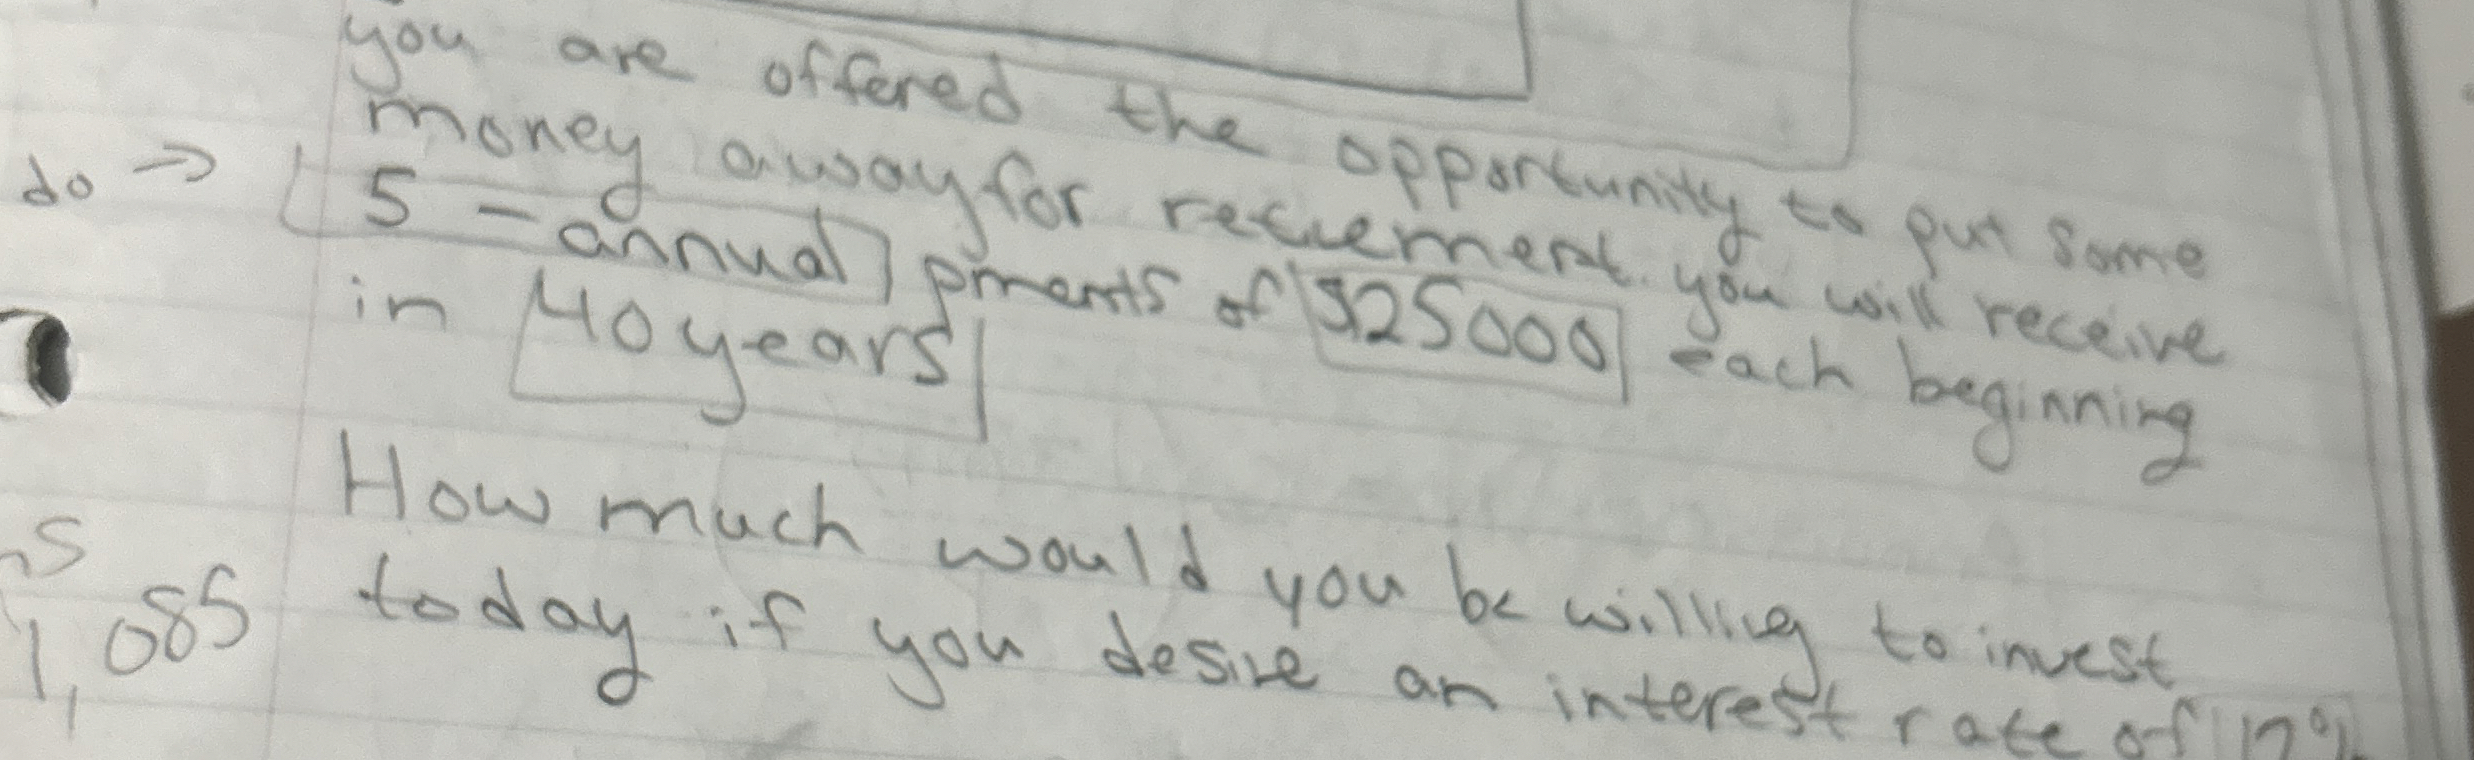 you are offered the opportunity to put some
money away for retirement. you will receive
do → 5 - annual pments of $25000 each beginning
in 40 years
How much would you be willing to invest
today if you desire an interest rate of 12%
1,085